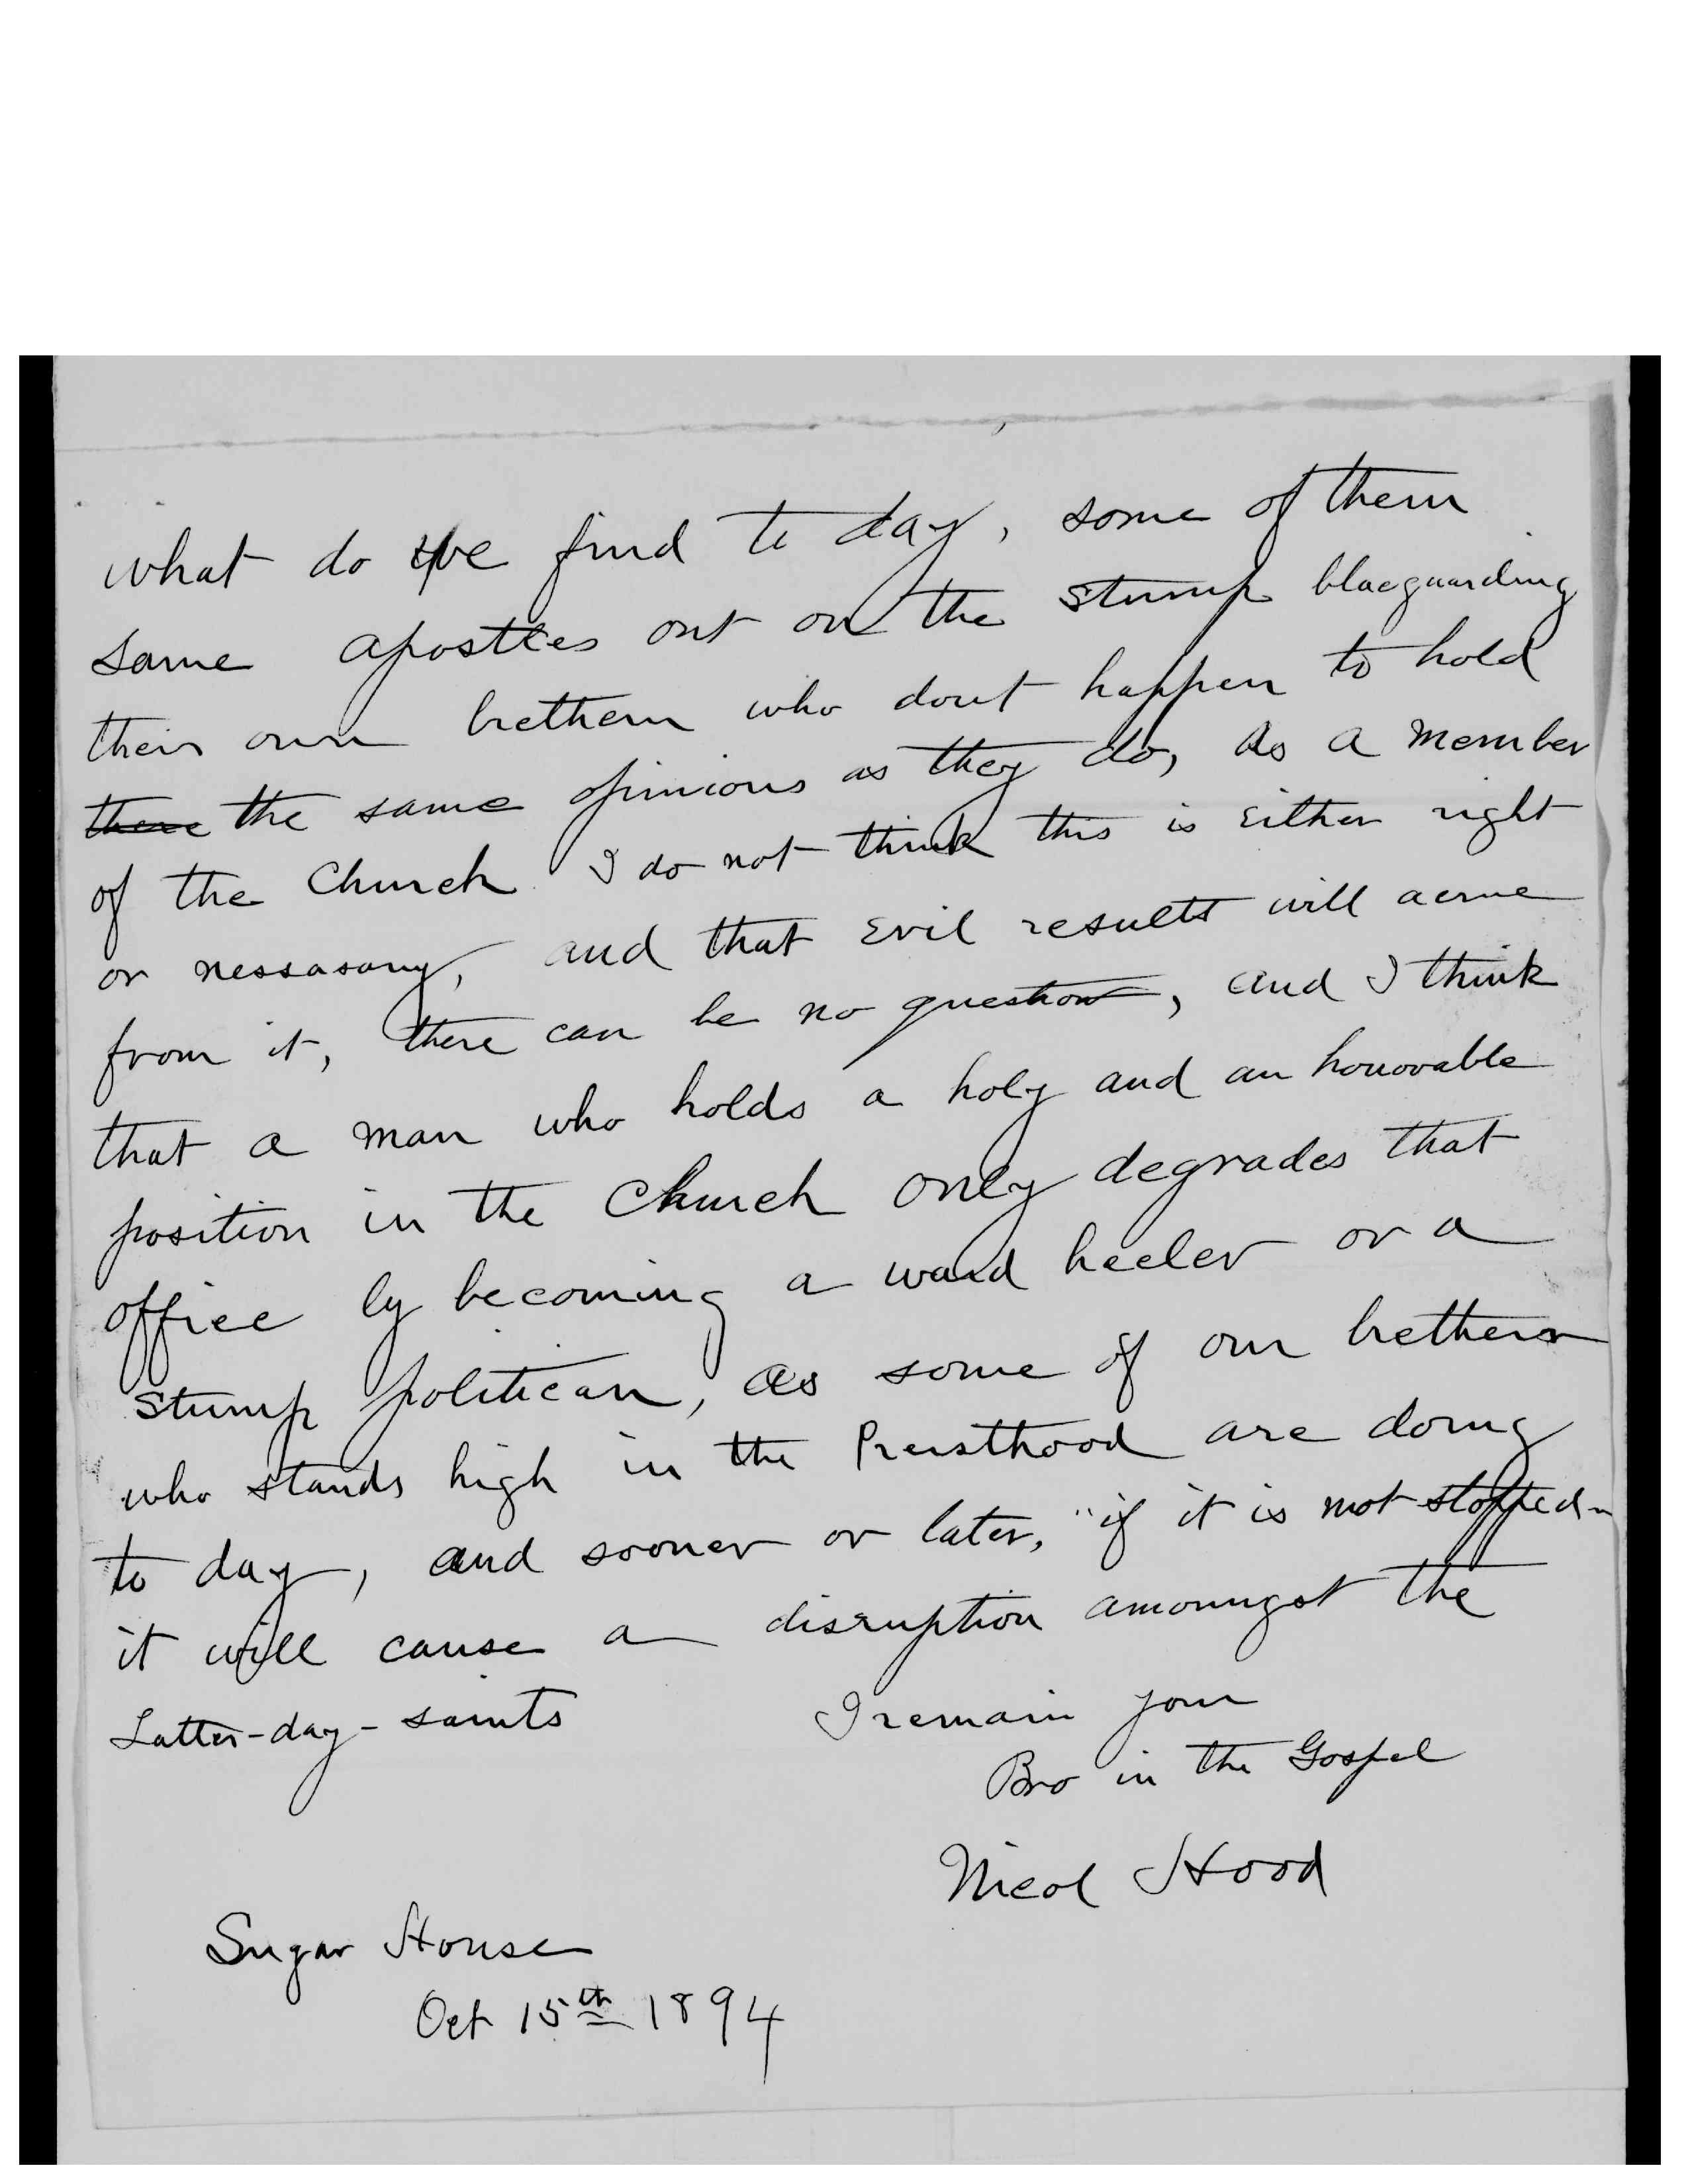 what do we find to day, some of them
same apostles out on the stump blacguarding
their own brethern who dont happen to hold
there the same opinions as they do, As a member
of the Church I do not think this is either right
or nessasary, and that evil results will acrue
from it, there can be no question, and I think
that a man who holds a holy and an honorable
position in the Church only degrades that
office by becoming a ward heeler or a
stump politican, as some of our bretheren
who stands high in the Preisthood are doing
to day, and sooner or later, "if it is not stopped"
it will cause a disruption amoungst the
Latter-day-saints I remain your
Bro in the Gospel
Nicol Hood
Sugar House
Oct 15th 1894